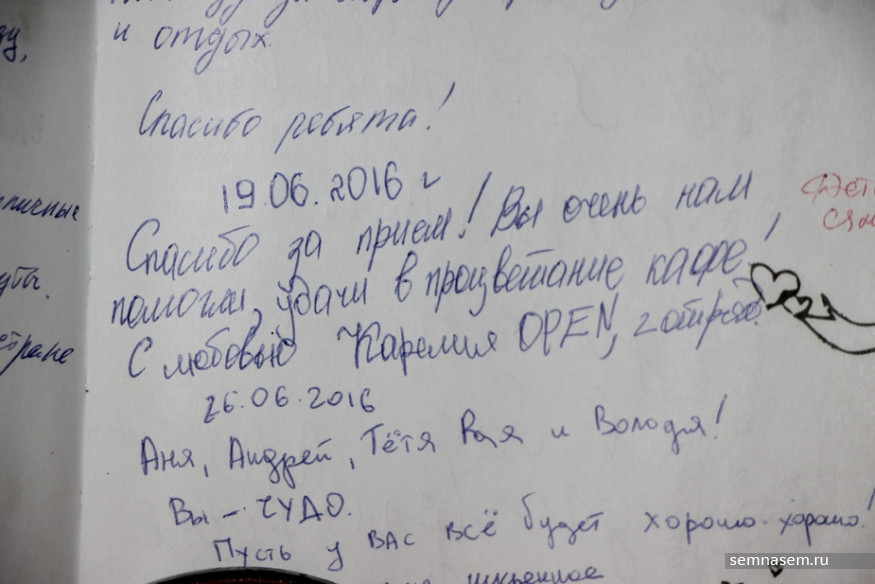 и отдых.
Спасибо ребята!
19.06.2016 г
Спасибо за прием! Вы очень нам
помогли, удачи в процветание кафе!
С любовью Карелия OPEN, 2 отряд.
26.06.2016
Аня, Андрей, Тётя Рая и Володя!
Вы - ЧУДО.
Пусть у вас всё будет хорошо-хорошо!
искренное
стране
semnasem.ru